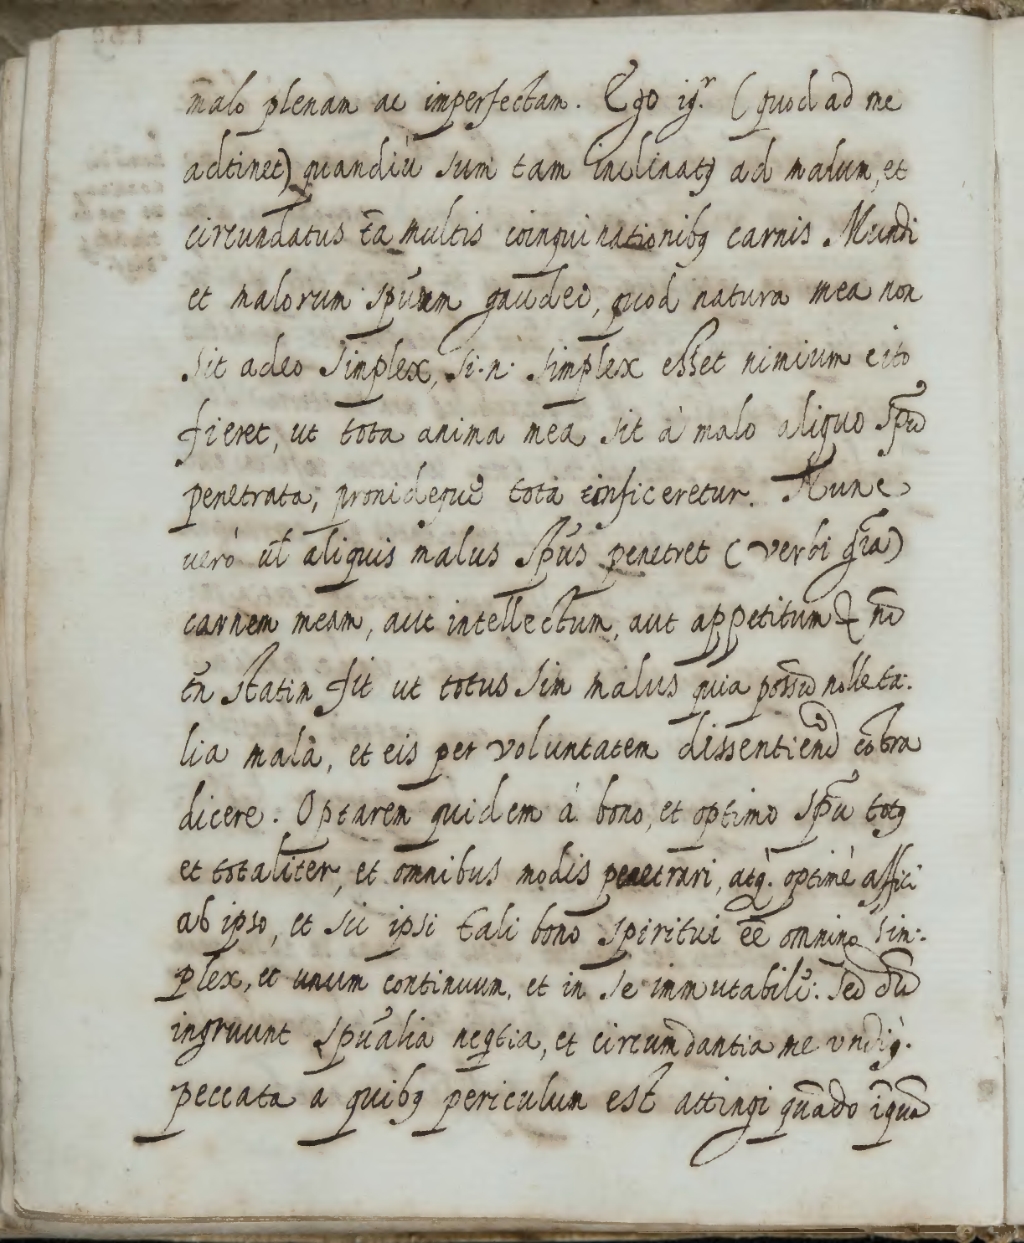 m̃alo plenam ac imperfectam. Ego ig.r (quod ad me
adtinet) quandiù sum tam inclinatꝯ ad malum, et
circundatus tã multis coinquinationibꝯ carnis Mundi
et malorum spũum gaudeo, quod natura mea non
sit adeo simplex, si.n. simplex esset nimium cito
fieret, ut tota anima mea sit à malo aliquo spũ
penetrata, proindeque tota inficeretur. Nunc
verò ut aliquis malus spũs penetret (verbi gr̃a)
carnem meam, aut intellectum, aut appetitum & nõ
tñ statim fit ut totus sim malus quia possũ nolle ta:
lia mala, et eis per voluntatem dissentiend cõtra
dicere. Optarem quidem à bono, et optimo spũ totꝯ
et totaliter, et omnibus modis penetrari, atq. optimè affici
ab ipso, et sic ipsi tali bono spiritui eẽ omnino sim:
plex, et unum continuum, et in se immutabile: sed dũ
ingruunt spũalia neqtia, et circumdantia me undiq.
peccata a quibꝯ periculum est attingi quãdo iq̃ua